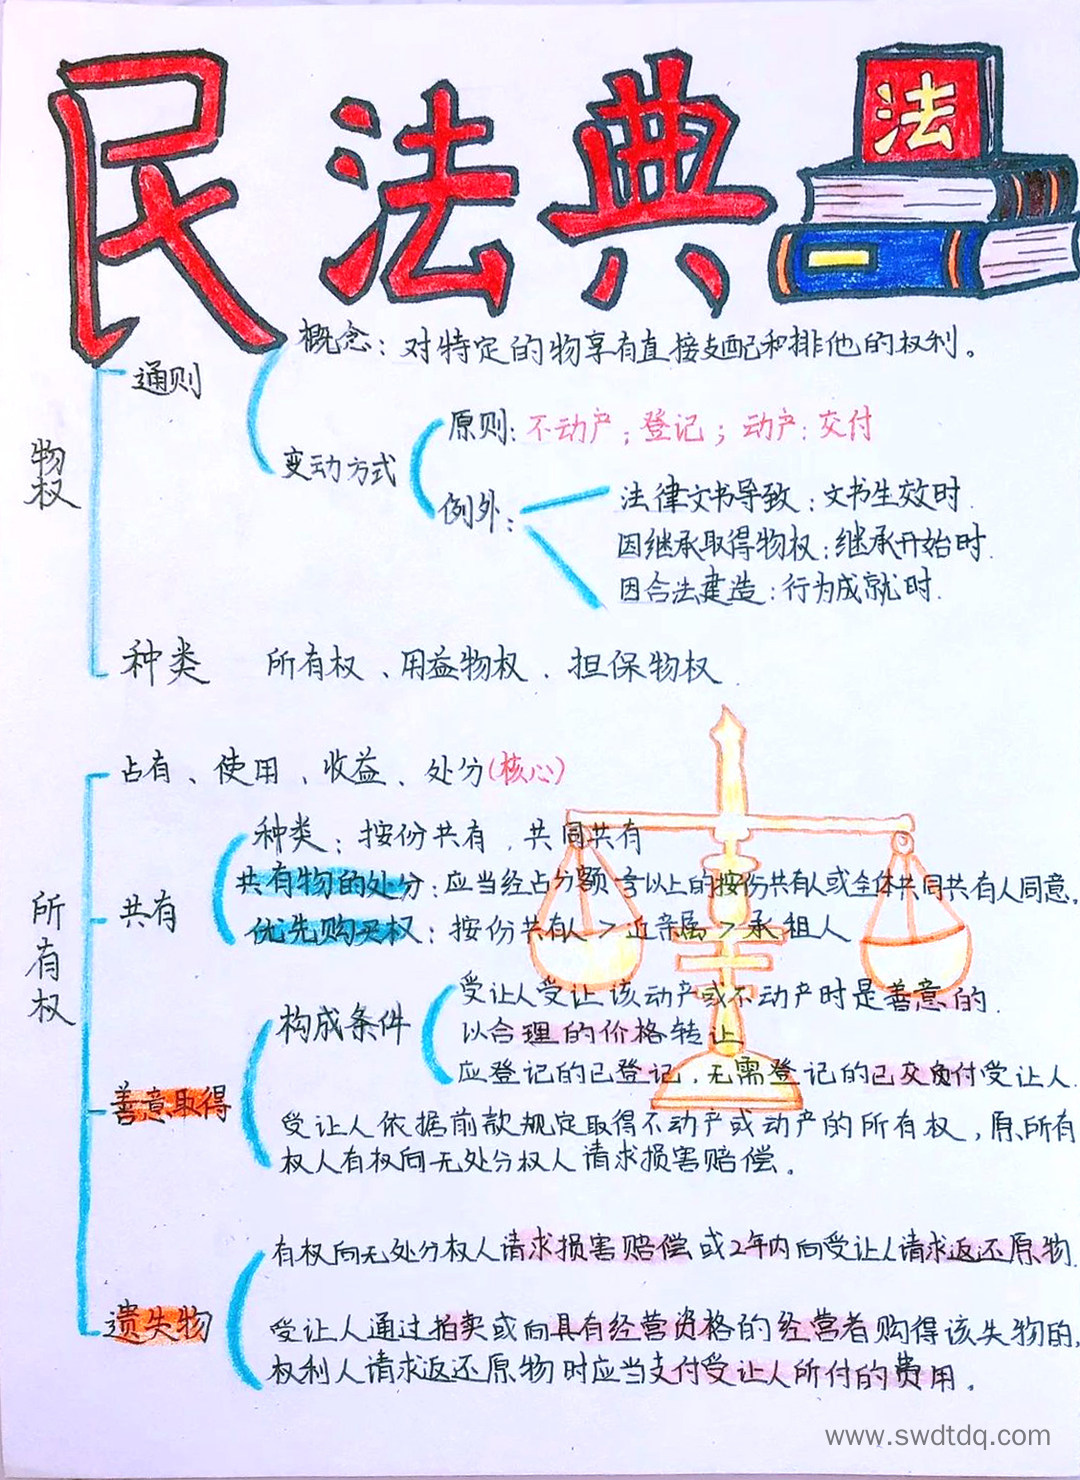 民法典
法
概念：对特定的物享有直接支配和排他的权利。
通则
原则：不动产；登记；动产：交付
物权
变动方式
例外：
法律文书导致：文书生效时.
因继承取得物权：继承开始时.
因合法建造：行为成就时.
种类 所有权、用益物权．担保物权.
占有、使用、收益、处分(核心)
种类：按份共有．共同共有
共有物的处分：应当经占分额 以上的按份共有人或全体共同共有人同意.
所有权
共有
优先购买权：按份共有人>近亲属>承租人
受让人受让该动产或不动产时是善意的.
构成条件
以合理的价格转让
应登记的已登记．无需登记的已交付受让人.
善意取得
受让人依据前款规定取得不动产或动产的所有权，原所有
权人有权向无处分权人请求损害赔偿。
有权向无处分权人请求损害赔偿或2年内向受让人请求返还原物.
遗失物
受让人通过拍卖或向具有经营资格的经营者购得该失物的,
权利人请求返还原物时应当支付受让人所付的费用。
www.swdtdq.com